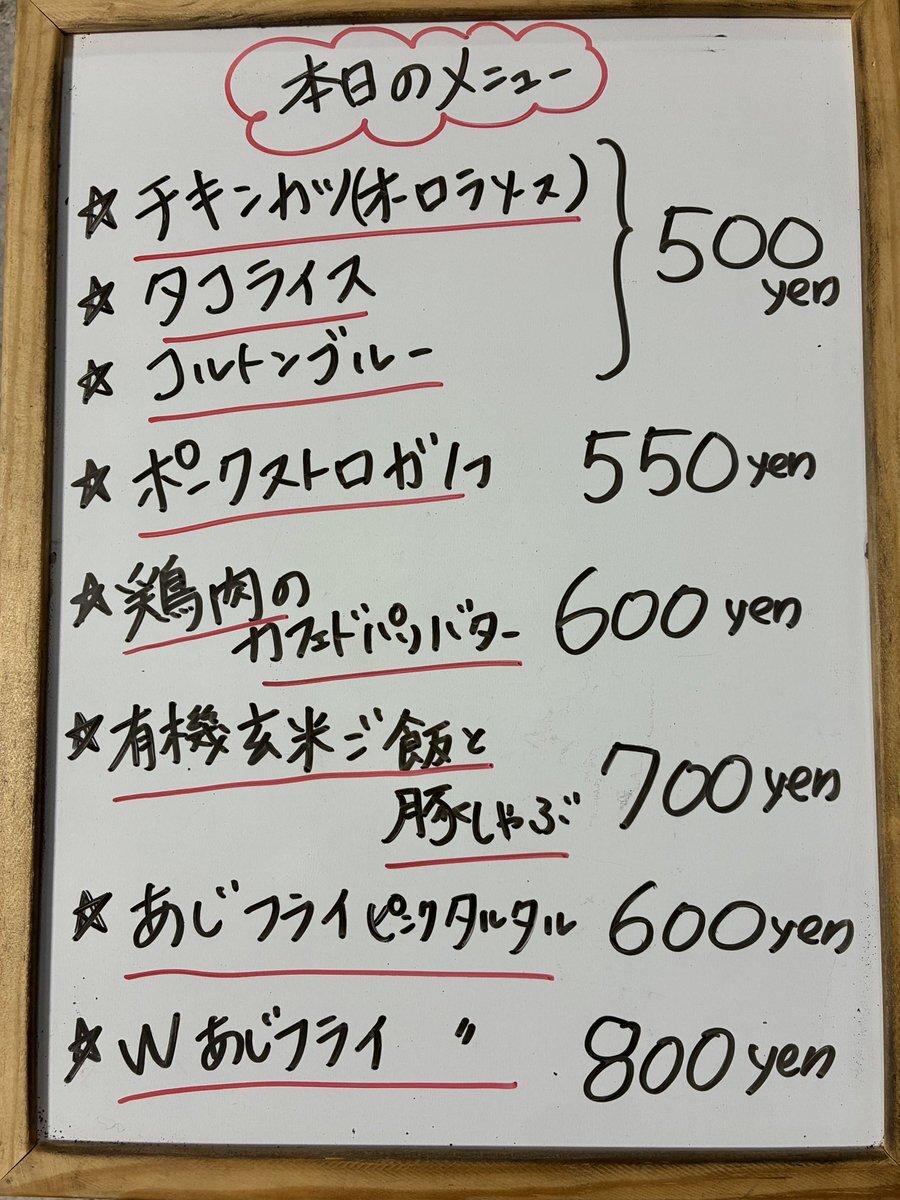 本日のメニュー
☆チキンカツ(オーロラソース)
☆タコライス
☆コルトンブルー
500
yen
☆ポークストロガノフ 550yen
☆鶏肉の
カフェドパリバター 600 yen
☆有機玄米ご飯と
豚しゃぶ 700yen
☆あじフライピンクタルタル 600yen
☆Wあじフライ 〃 800yen